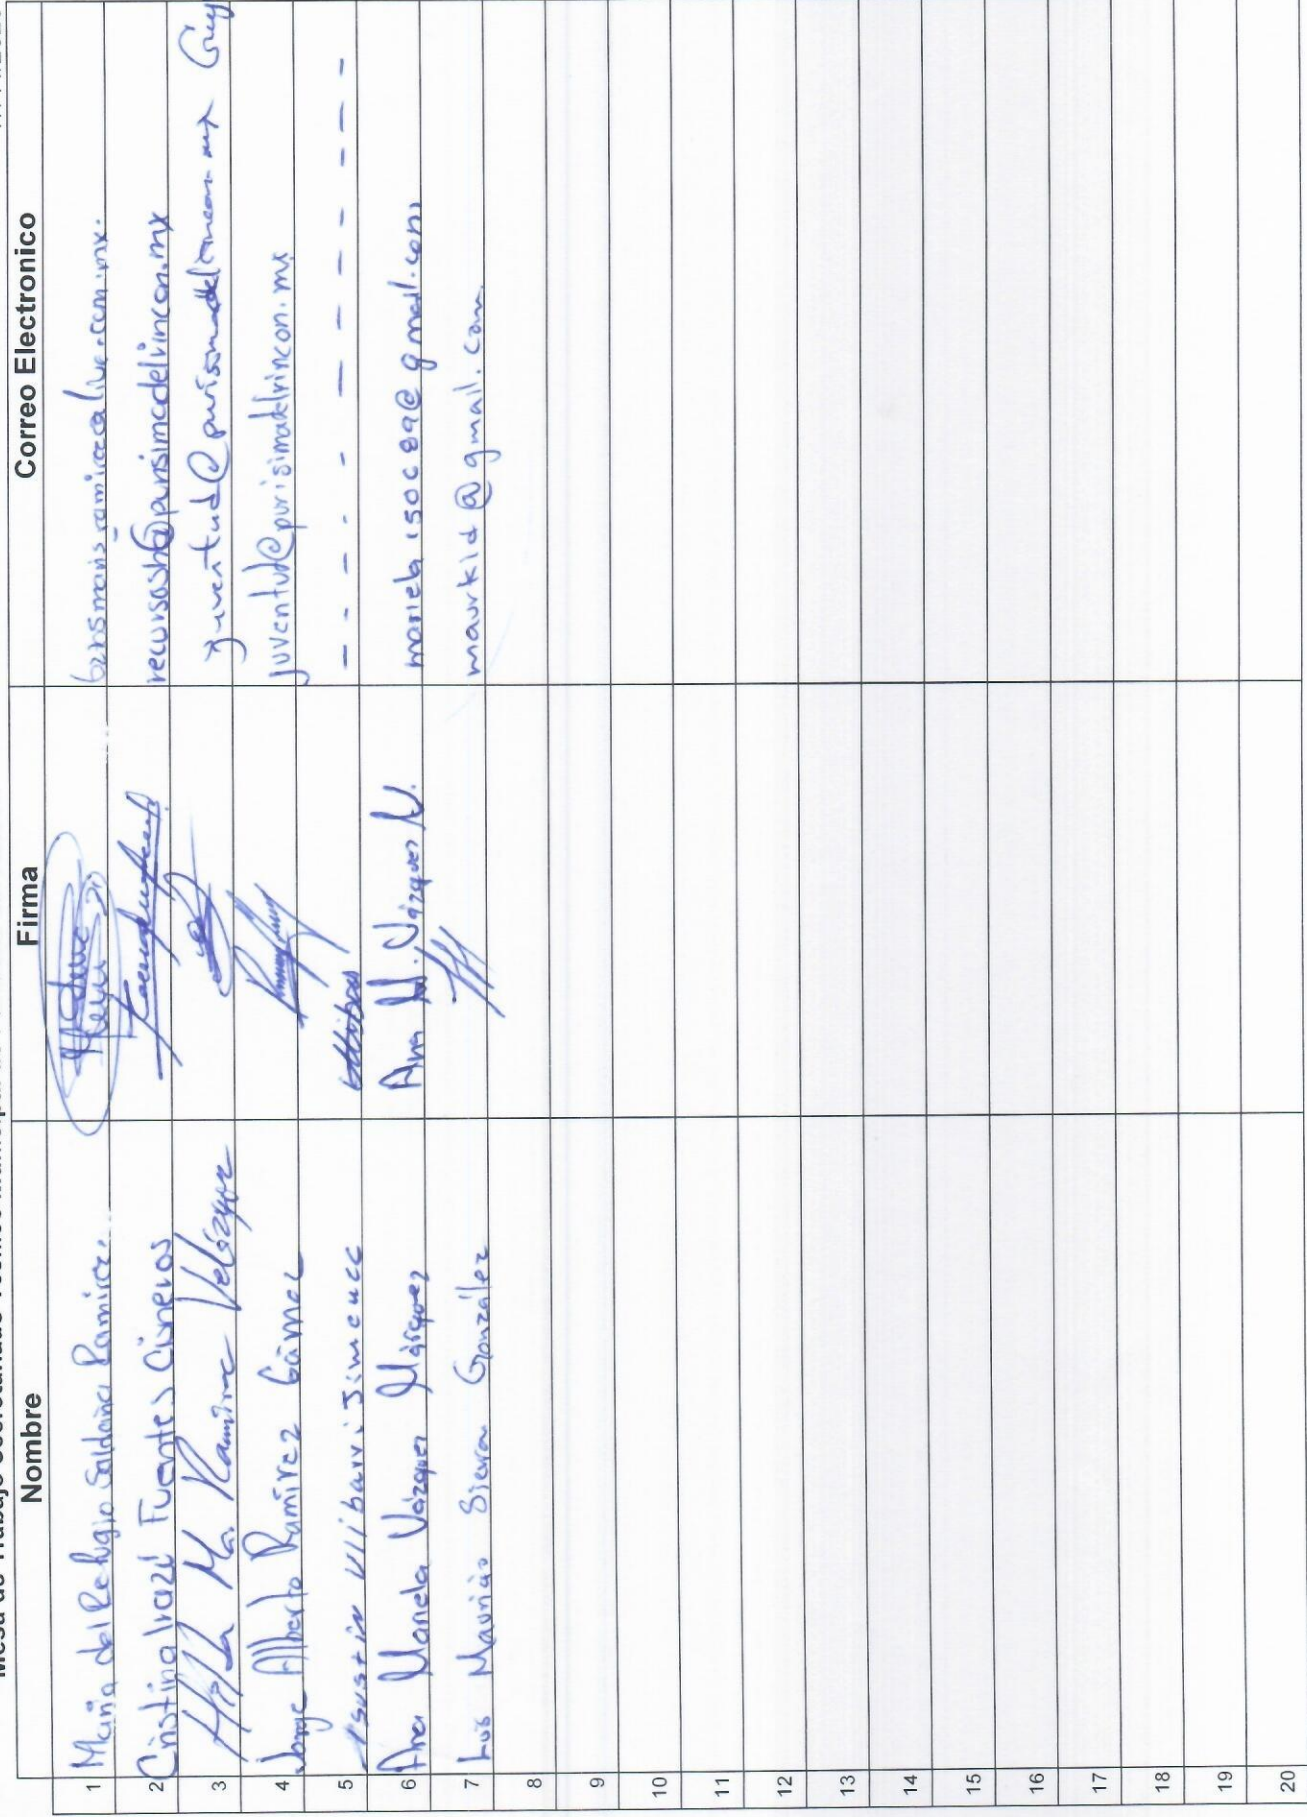 Nombre Firma Correo Electronico
1 María del Refugio Saldaña Ramírez.
2 Cristina Irazí Fuentes Cisneros recursosh@purisimadelrincon.mx
3 Ma. Ramírez Velázquez juventud@purisimadelrincon.mx
4 Jorge Alberto Ramírez Gámez juventud@purisimadelrincon.mx
5 Ulibarri - - - - - - - - - - -
6 Ana Mariela Vázquez Márquez Ana M. Vázquez M. mariela150689@gmail.com
7 Luis Mauricio Sierra González maurkid@gmail.com
8
9
10
11
12
13
14
15
16
17
18
19
20